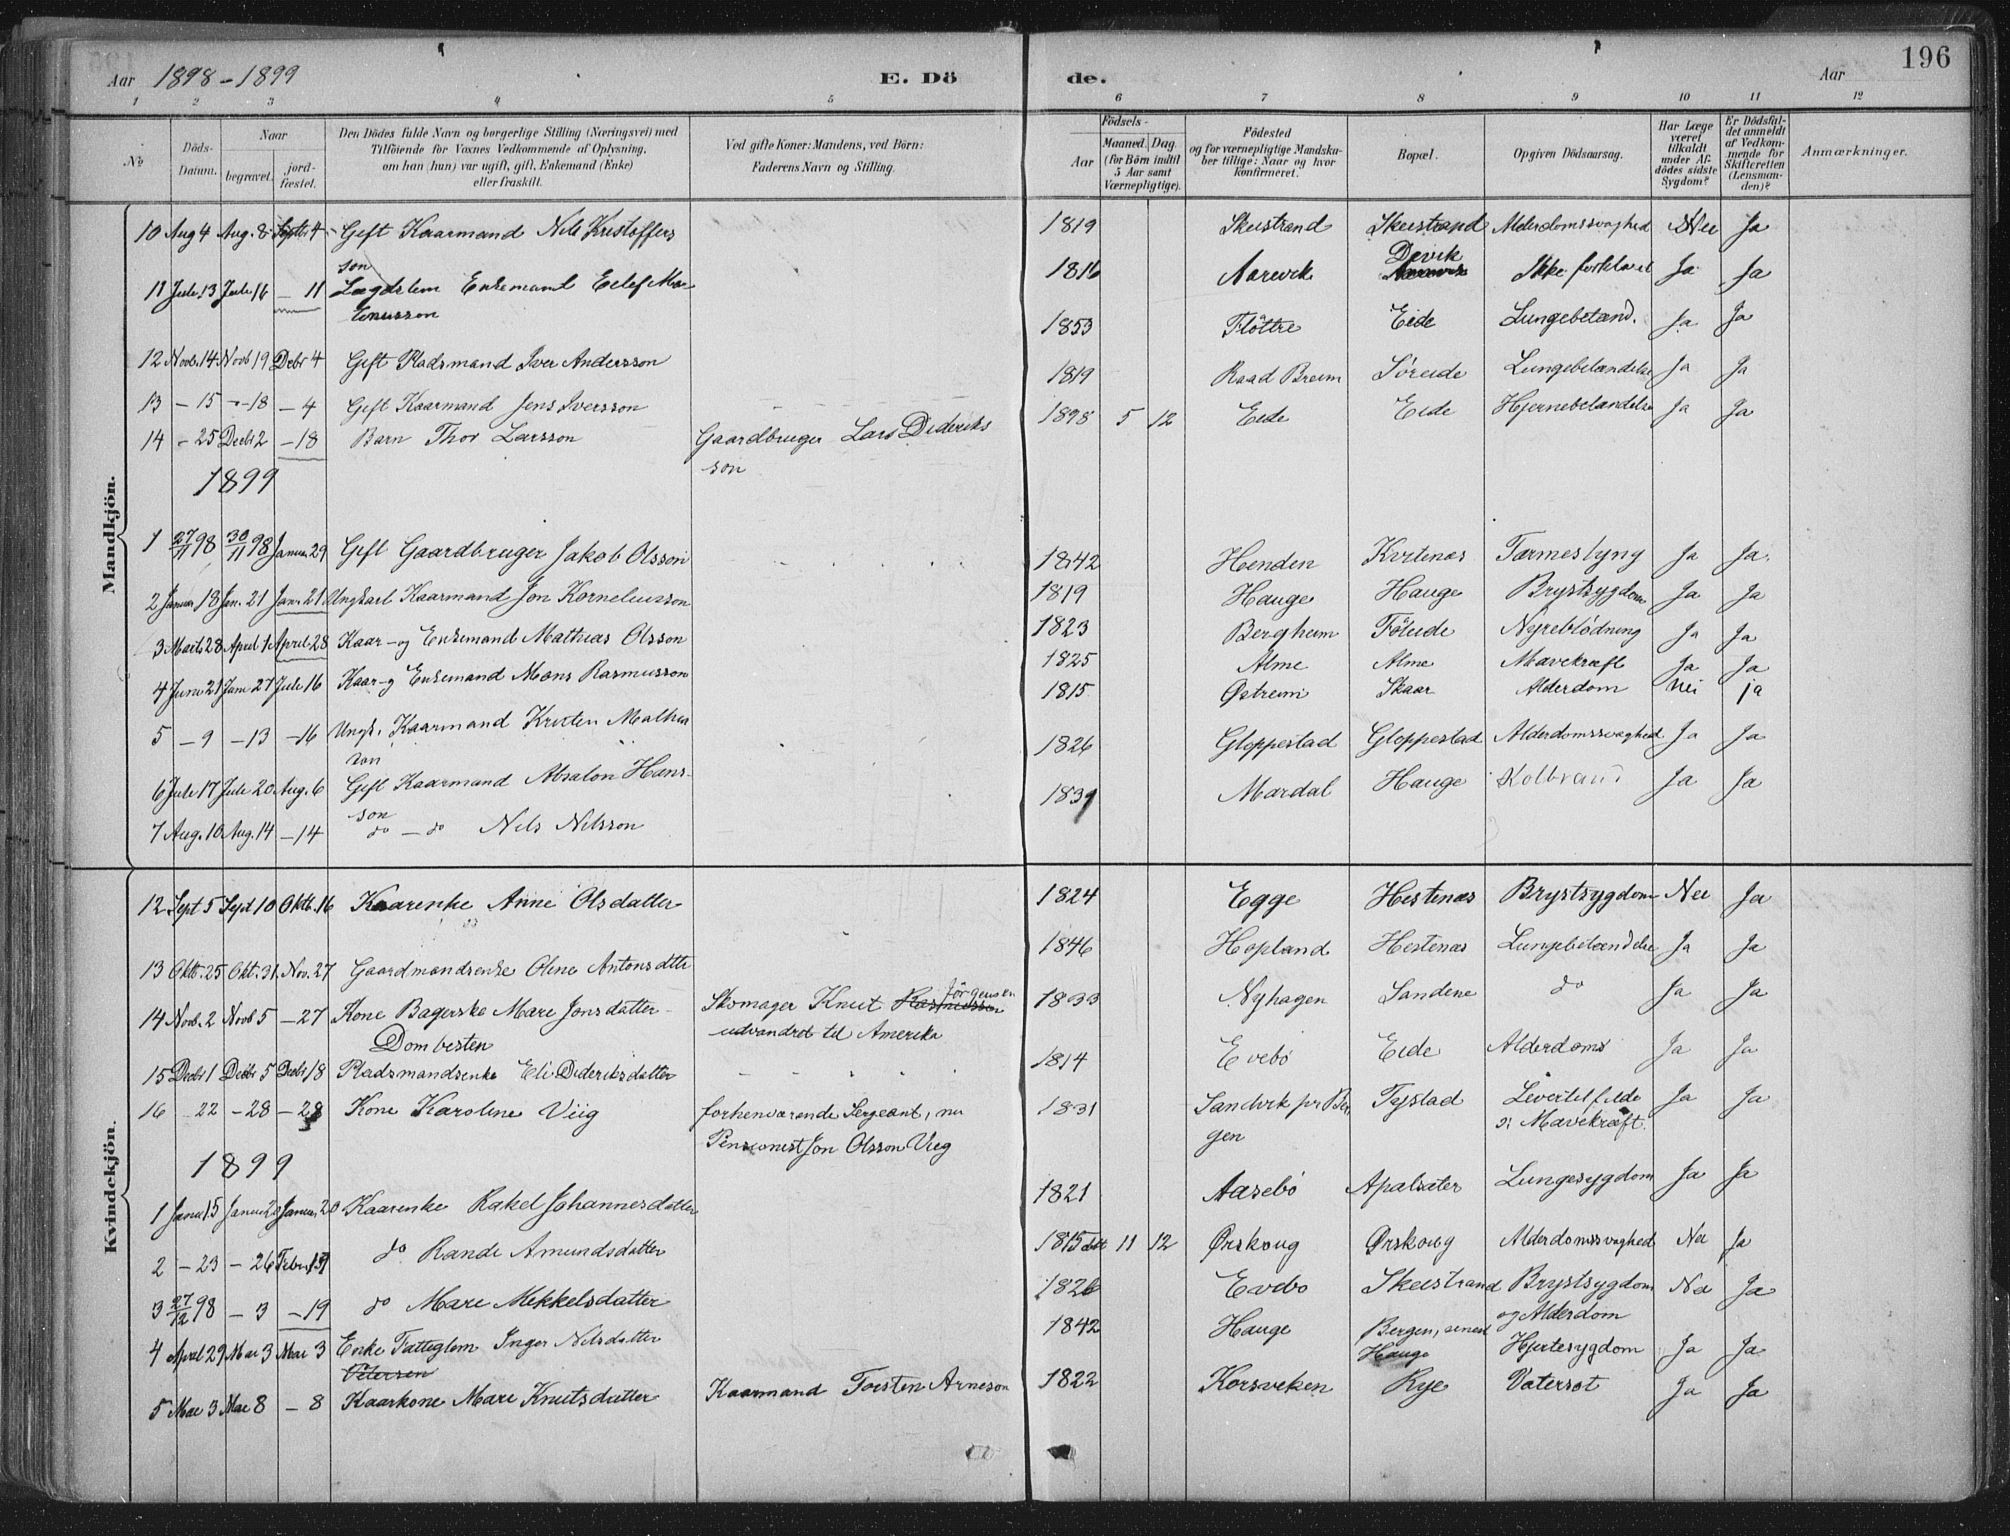 Aar 1898-1899 E. Döde. Aar 196
1 2 3 4 5 6 7 8 9 10 11 12
No
Döds-Datum.
Naar
begravet.
jord-fæstet.
Den Dödes fulde Navn og borgerlige Stilling (Næringsvei) med
Tilföiende for Voxnes Vedkommende af Oplysning,
om han (hun) var ugift, gift, Enkemand (Enke)
eller fraskilt.
Ved gifte Koner: Mandens, ved Börn:
Faderens Navn og Stilling.
Födsels-
Aar
Maaned. Dag.
(for Börn indtil
5 Aar samt
Værnepligtige).
Födested
og for værnepligtige Mandska-
ber tillige: Naar og hvor
konfirmeret.
Bopæl.
Opgiven Dödsaarsag.
Har Læge
været
tilkaldt
under Af-
dödes sidste
Sygdom?
Er Dödsfal-
det anmeldt
af Vedkom-
mende for
Skifteretten
(Lensman-
den)?
Anmærkninger.
Mandkjön.
10 Aug 4 Aug. 8 Septb. 4 Gift Kaarmand Nils Kristoffers 1819 Skeistrand Skeistrand Alderdomssvaghed Nei Ja
son
11 Juli 13 Juli 16 - 11 Lægdslem Enkemand Eelef Mo- 1816 Aarevik Devik Ikke forklaret Ja Ja
tenusson
12 Novb. 14 Novb 19 Decbr 4 Gift Pladsmand Iver Andersson 1853 Flöttre Eide Lungebetænd. Ja Ja
13 - 15 - 18 - 4 Gift Kaarmand Jens Iversson 1819 Raad Breim Söreide Lungebetændelse Ja Ja
14 - 25 Decbr 2 - 18 Barn Thor Larsson Gaardbruger Lars Dideriks 1898 5 12 Eide Eide Hjernebetændelse Ja Ja
son
1899
1 27/11 98 30/11 98 Januar 29 Gift Gaardbruger Jakob Olsson 1842 Henden Kvitenæs Tarmeslyng Ja Ja
2 Januar 18 Jan. 21 Jan. 21 Ungkarl Kaarmand Jon Korneliusson 1819 Hauge Hauge Brystsygdom Ja Ja
3 Marts 28 April 1 April 28 Kaar- og Enkemand Mathias Olsson 1823 Bergheim Föleide Nyreblödning Ja Ja
4 Juni 21 Juni 27 Juli 16 Kaar- og Enkemand Mons Rasmusson 1825 Alme Alme Mavekræft Ja Ja
5 - 9 - 13 - 16 Ungk. Kaarmand Kristen Mathias 1815 Østreim Skaar Alderdom Nei ja
son
6 Juli 17 Juli 20 Aug. 6 Gift Kaarmand Absalon Hans- 1826 Gloppestad Gloppestad Alderdomssvaghed Ja Ja
son
7 Aug. 10 Aug. 14 - 14 do - do Nils Nilsson 1839 Mardal Hauge Kolbrand Ja Ja
Kvindekjön.
12 Sept 5 Sept 10 Oktb. 16 Kaarenke Anne Olsdatter 1824 Egge Hestenæs Brystsygdom Nei Ja
13 Oktb. 25 Okt. 31 Nov. 27 Gaardmandsenke Oline Antonsdtr 1846 Hopland Hestenæs Lungebetændelse Ja Ja
14 Novb. 2 Novb 5 - 27 Kone Bagerske Mari Jonsdatter Skomager Knut Rasmussen Jörgensen 1833 Nyhagen Sandene do Ja Ja
Dombesten udvandret til Amerika
15 Decbr 1 Decbr 5 Decbr 18 Pladsmandsenke Eli Dideriksdatter 1814 Evebö Eide Alderdoms Ja Ja
16 22 - 28 - 28 Kone Karoline Viig forhenværende Sergeant, nu 1831 Sandvik pr Ber Tystad Levertilfælde Ja Ja
Pensionist Jon Olsson Viig gen o: Mavekræft.
1899
1 Januar 15 Januar 20 Januar 20 Kaarenke Rakel Johannesdatter 1821 Aasebö Apalsæter Lungesygdom Ja Ja
2 - 23 - 26 Febr. 19 do Rande Amundsdatter 1815 11 12 Ørskoug Ørskoug Alderdomssvaghed Nei Ja
3 27/12 98 - 3 - 19 do Mari Mikkelsdatter 1826 Evebö Skeistrand Brystsygdom Nei Ja
og Alderdom
4 April 29 Mai 3 Mai 3 Enke Fattiglem Inger Nilsdatter 1842 Hauge Bergen, senest Hjertesygdom Ja Ja
Petersen Hauge
5 Mai 3 Mai 8 - 8 Kaarkone Mari Knutsdatter Kaarmand Torsten Arneson 1822 Korsveken Rye Vatersot Ja Ja